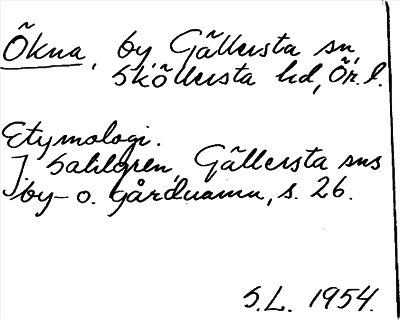 Ökna, by, Gällersta sn,
Sköllersta hd, Ör. l.
Etymologi.
J. Sahlgren, Gällersta sns
by- o. gårdnamn, s. 26.
S.L. 1954.